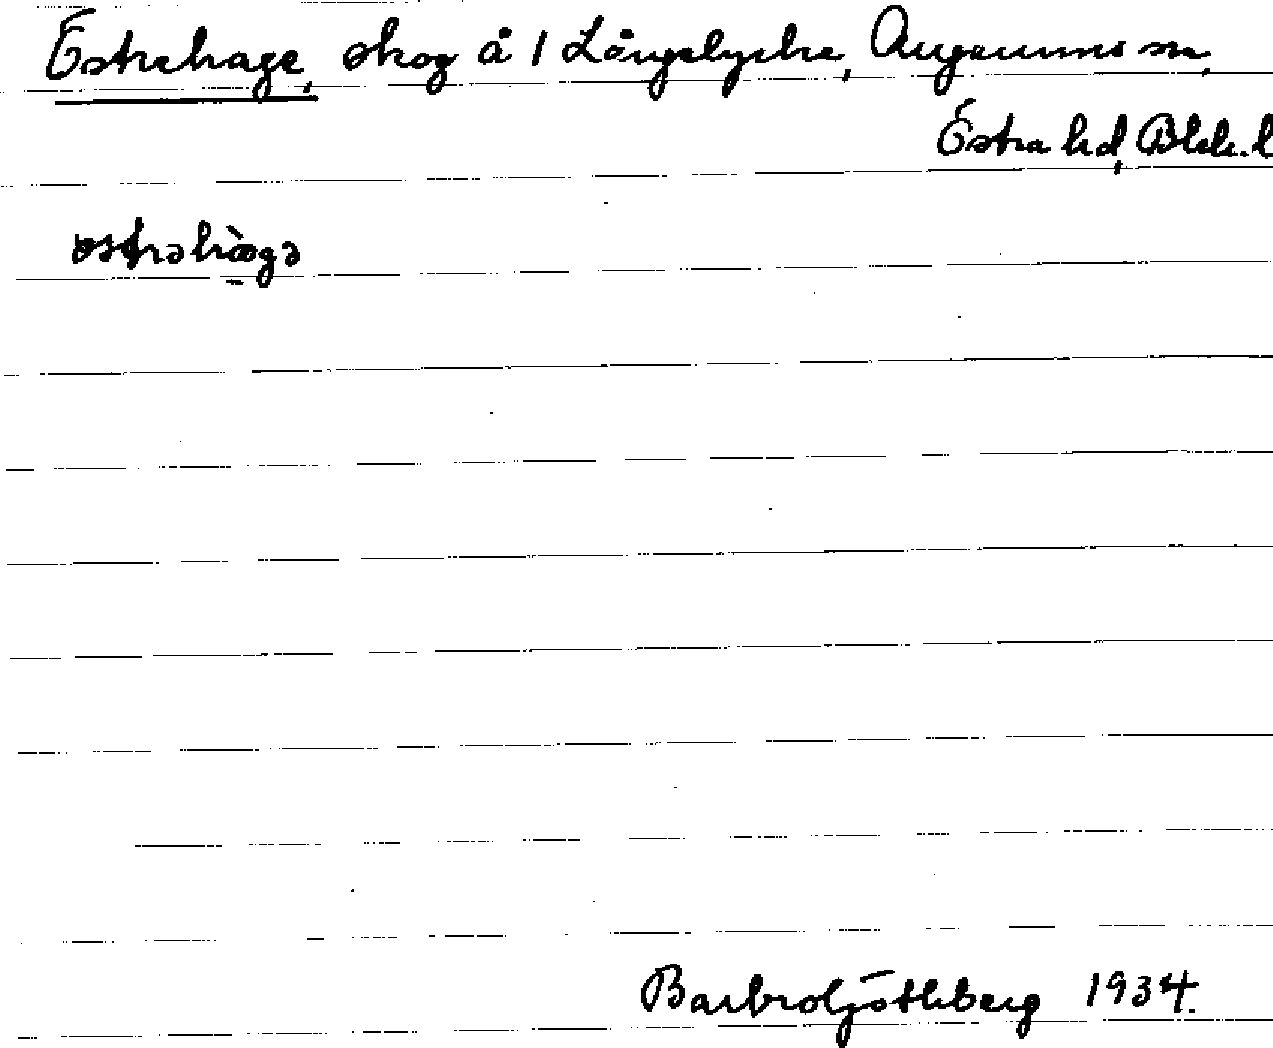 Östrehage, skog å 1 Långelycke, Augerums sn,
Östra hd, Blek. l
Barbro Götheberg 1934.